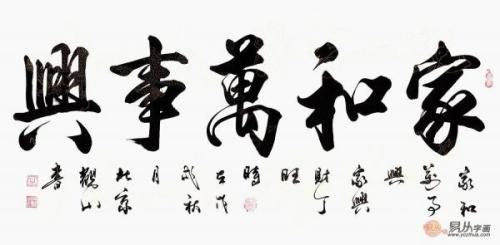 家和萬事興
家和
万事
興
家興
财丁
旺
時
在戊
戌秋
月
北京
山
書
易从字画
www.yczihua.com